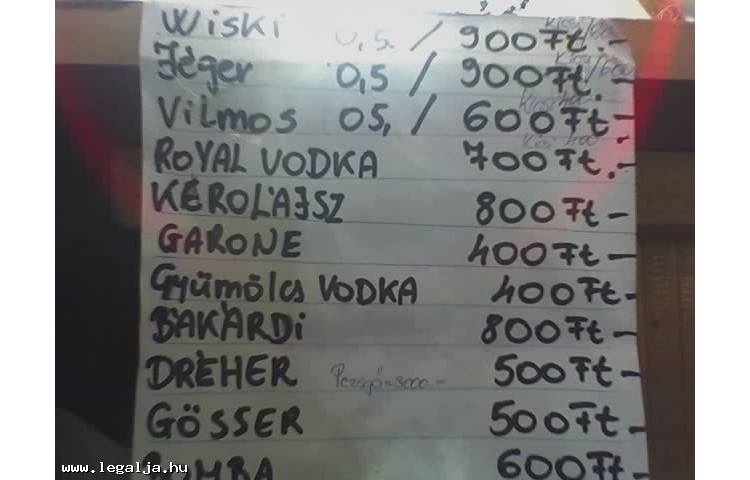 Wiski 0,5. / 900 Ft.-
Jéger 0,5 / 900 Ft.
Vilmos 05, / 600 Ft.-
ROYAL VODKA 700 Ft.-
KÉROLÁJSZ 800 Ft-
GARONE 400 Ft-
Gyümölcs VODKA 400 Ft-
BAKÁRDi 800 Ft-
DREHER Pezsgő=3000.- 500 Ft-
GÖSSER 500 Ft-
600 Ft-
www.legalja.hu